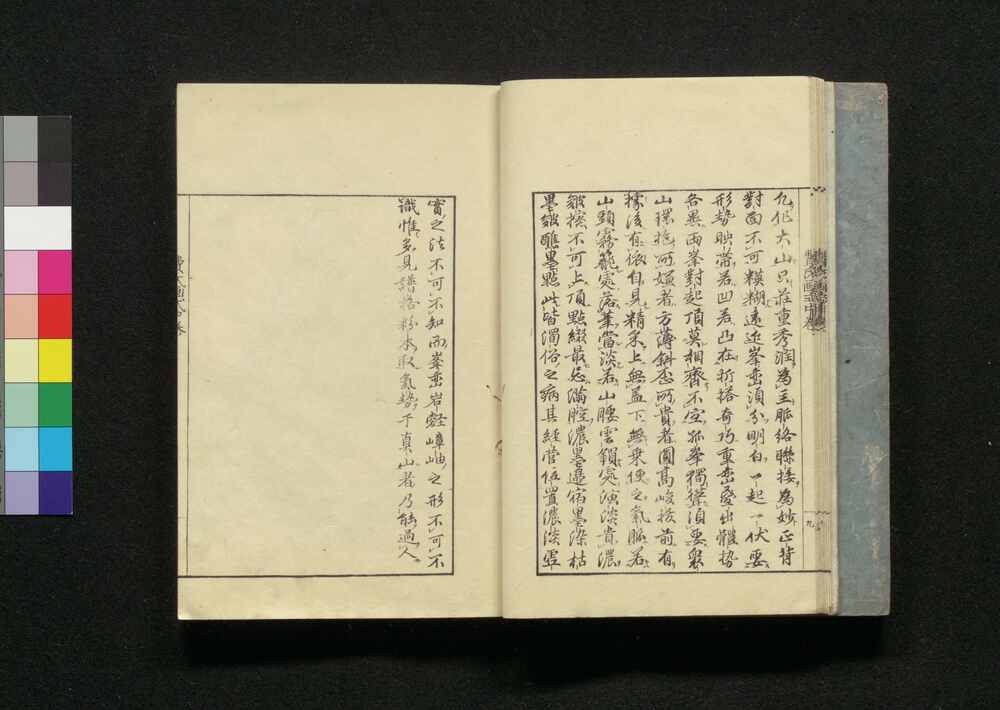 凡作大山只莊重秀潤為主脈絡聯接為妙正背
對面不可糢糊遠近峯巒須分明白一起一伏要
形勢映帶若凹若凸在折搭奇巧重巒疊出體勢
各異兩峯對起頂莫相齊不宜孤峯獨聳須要衆
山環抱所嫌者方薄斜歪所貴者圓高峻拔前有
據後有依自見精采上無盖下無乗便之氣脈若
山頭霧籠處落筆當淡若山腰雲鎖處演淡貴濃
皴擦不可上頂點綴最忌滿腔濃墨邊宿墨染枯
墨皴醮墨點此皆濁俗之病其經營位置濃淡虛
實之法不可不知而峯巒岩壑嶂岫之形不可不
識惟多見譜格粉本取氣勢于真山者乃能過人